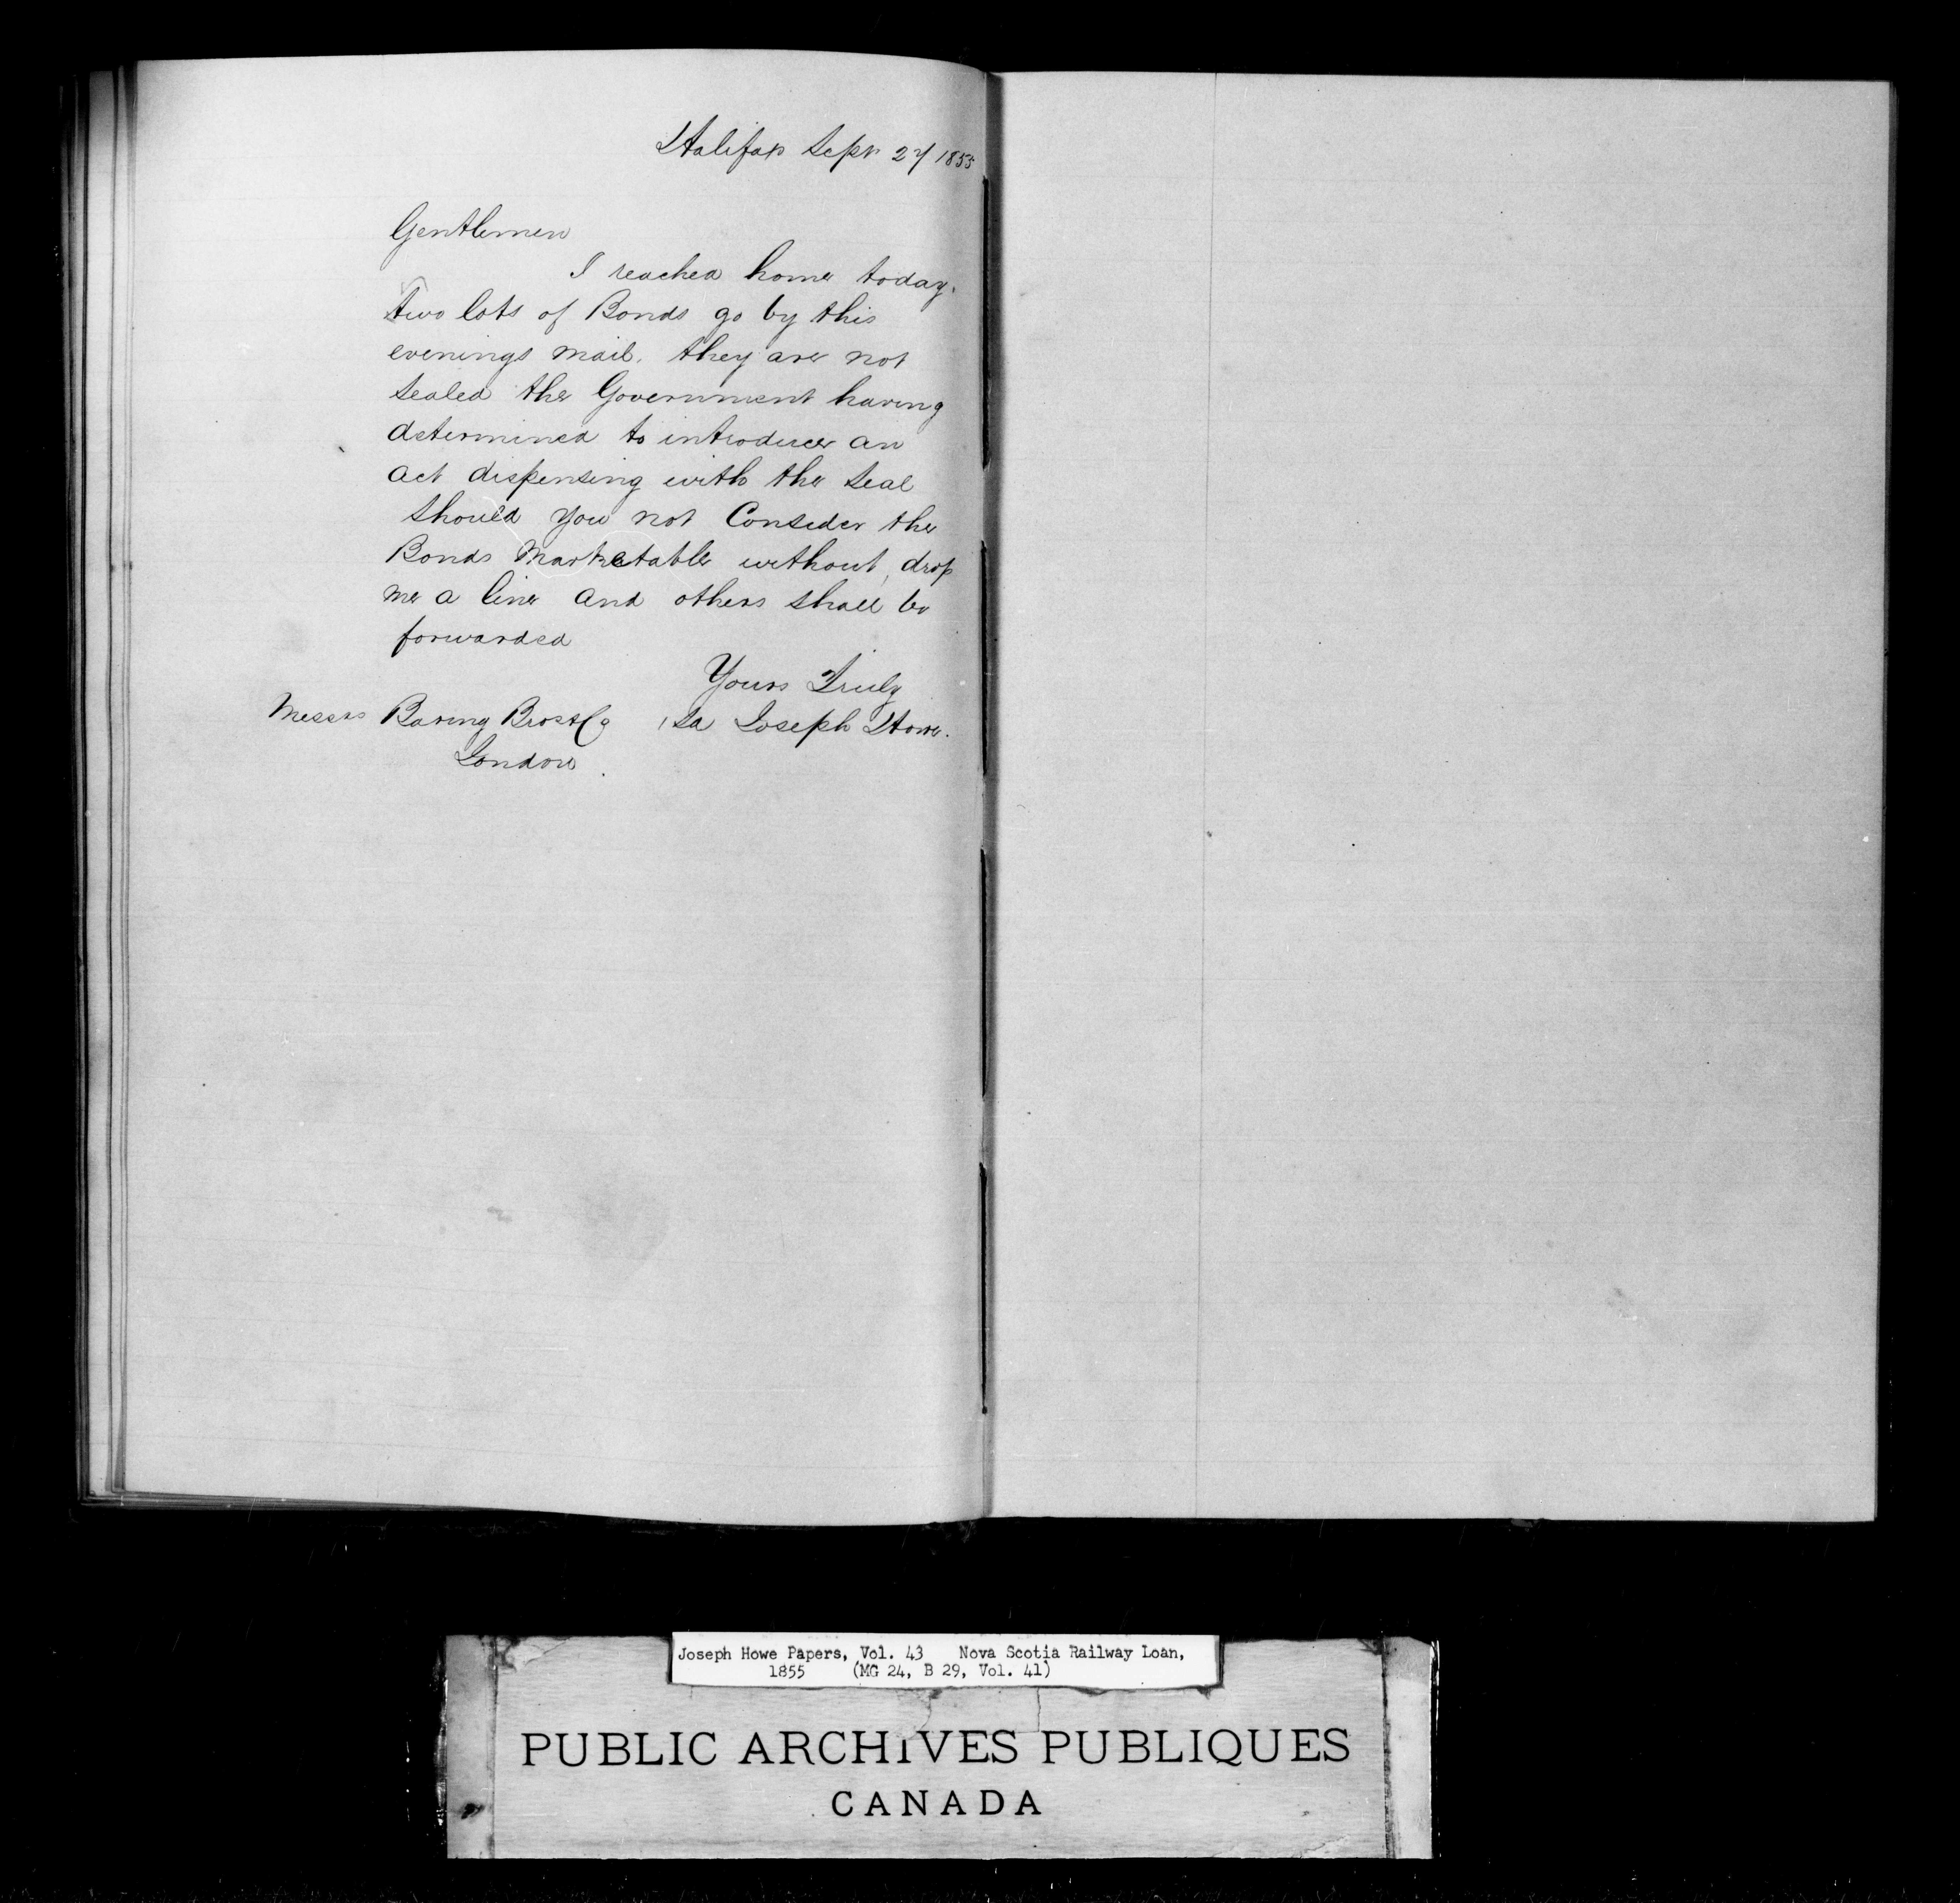 Halifax Sept 27 1855
Gentlemen
I reached home today.
two lots of Bonds go by this
evenings mail. they are not
sealed the Government having
determined to introduce an
act dispensing with the seal
should you not Consider the
Bonds Marketable without, drop
me a line and others shall be
forwarded
Yours Truly
Messrs Baring Bros & Co sd Joseph Howe.
London.
Joseph Howe Papers, Vol. 43 Nova Scotia Railway Loan,
1855 (MG 24, B 29, Vol. 41)
PUBLIC ARCHIVES PUBLIQUES
CANADA